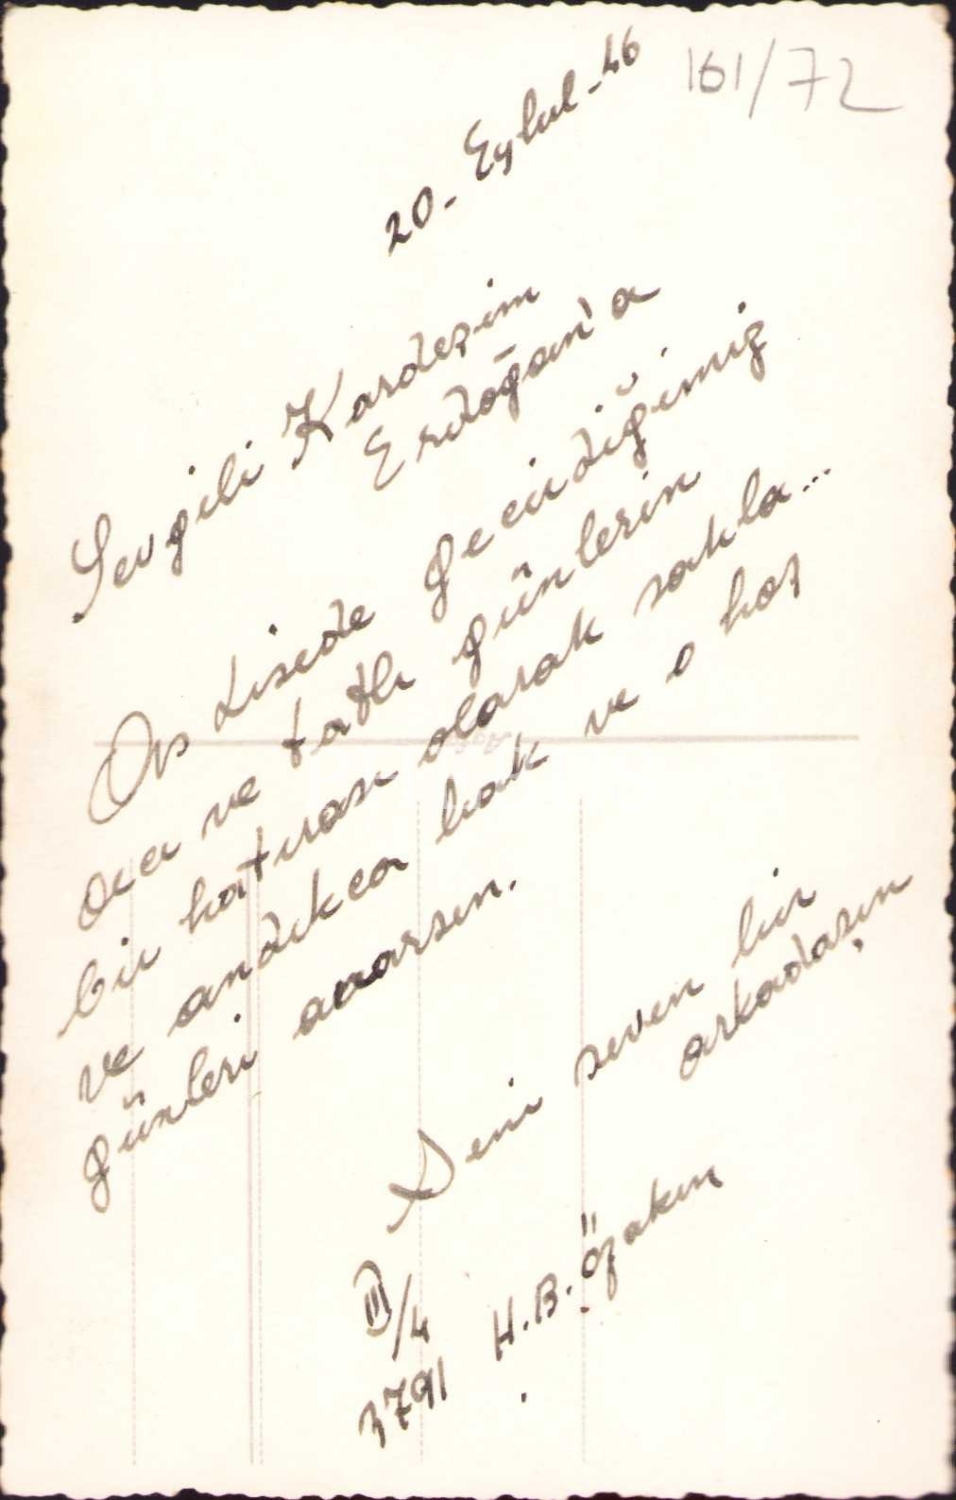 161/72
20- Eylul-46
Sevgili Kardeşim
Erdoğan'a
As Lisede geçirdiğimiz
acı ve tatlı günlerin
bir hatırası olarak sakla...
ve andıkca bak ve o hoş
günleri ararsın.
Seni seven bir
arkadaşın
H.B. Özakın
III/4
3791